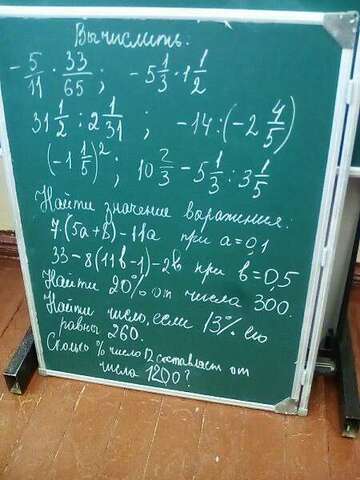 Вычислить:
-5/11 · 33/65 ; -5 1/3 · 1 1/2
31 1/2 : 2 1/31 ; -14 : (-2 4/5)
(-1 1/5)² ; 10 2/3 - 5 1/3 : 3 1/5
Найти значение выражения.
7·(5a+8)-11a при a=0,1
33-8(11в-1)-2в при в=0,5
Найти 20% от числа 300.
Найти число, если 13% его
равны 260.
Сколько % число 12 составляет от
числа 1200?